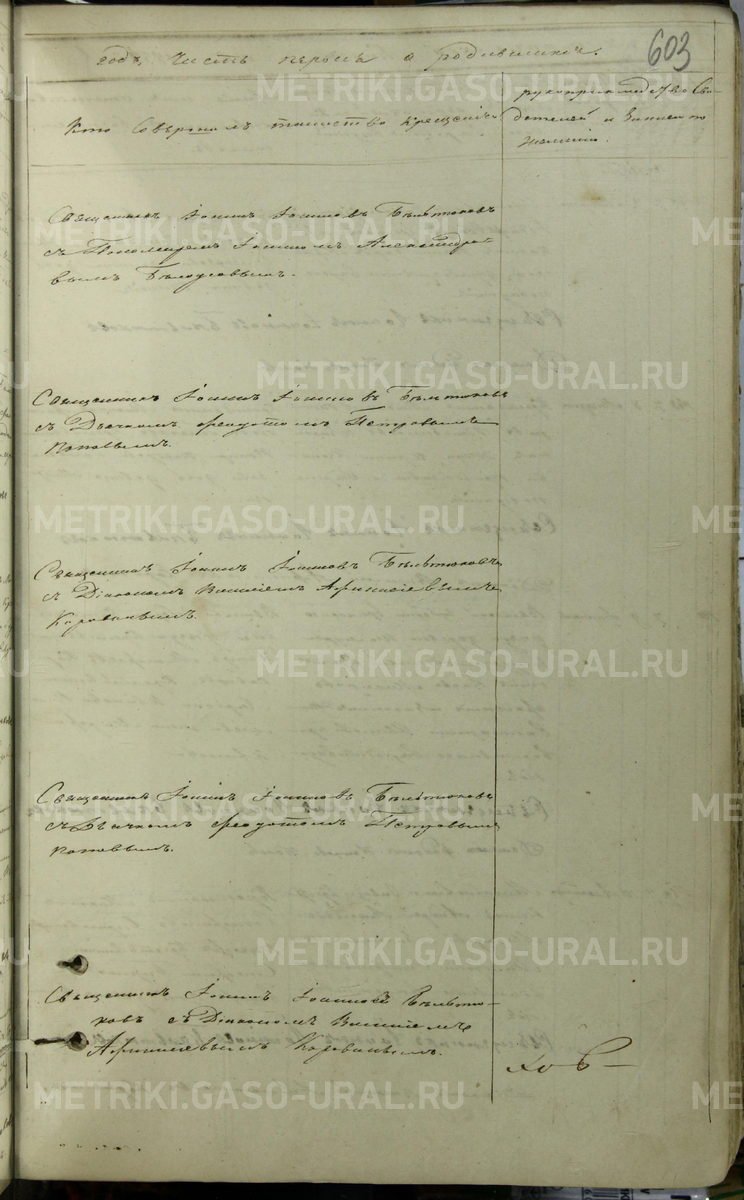 603
годъ часть первая о родившихся.
Кто совершалъ таинство крещенія
рукоприкладство Сви-
детелей и записи по
желанію.
Священникъ Іоаннъ Іоанновъ Бѣльтюковъ
съ Пономаремъ Іоанномъ Александро-
вымъ Бѣлоусовымъ.
Священникъ Іоаннъ Іоанновъ Бѣльтюковъ
съ Дьячкомъ Ѳеодотомъ Петровымъ
Поповымъ.
Священникъ Іоаннъ Іоанновъ Бѣльтюковъ
съ Діакономъ Василіемъ Афанасіевымъ
Короваевымъ.
Священникъ Іоаннъ Іоанновъ Бѣльтюковъ
съ Дьячкомъ Ѳеодотомъ Петровымъ
Поповымъ.
Священникъ Іоаннъ Іоанновъ Бѣльтю-
ковъ съ Діакономъ Василіемъ
Афанасіевымъ
METRIKI.GASO-URAL.RU